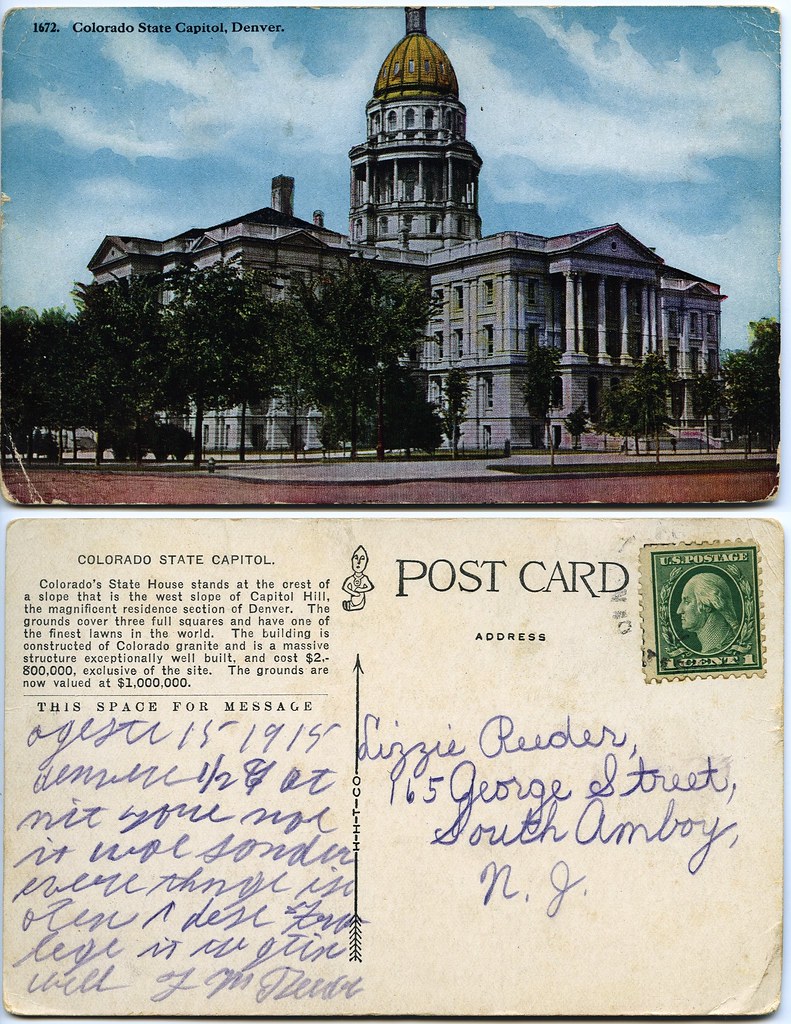 1672. Colorado State Capitol, Denver.
COLORADO STATE CAPITOL.
Colorado's State House stands at the crest of
a slope that is the west slope of Capitol Hill,
the magnificent residence section of Denver. The
grounds cover three full squares and have one of
the finest lawns in the world. The building is
constructed of Colorado granite and is a massive
structure exceptionally well built, and cost $2,-
800,000, exclusive of the site. The grounds are
now valued at $1,000,000.
THIS SPACE FOR MESSAGE
ogeste 15 1915
1/2 at
nit youre noe
it woe sonder
evere thnge is
I dese
it is
well of M Reede
H-H-T-CO.
POST CARD
ADDRESS
U.S. POSTAGE
1 CENT 1
Lizzie Reeder,
165 George Street,
South Amboy,
N. J.